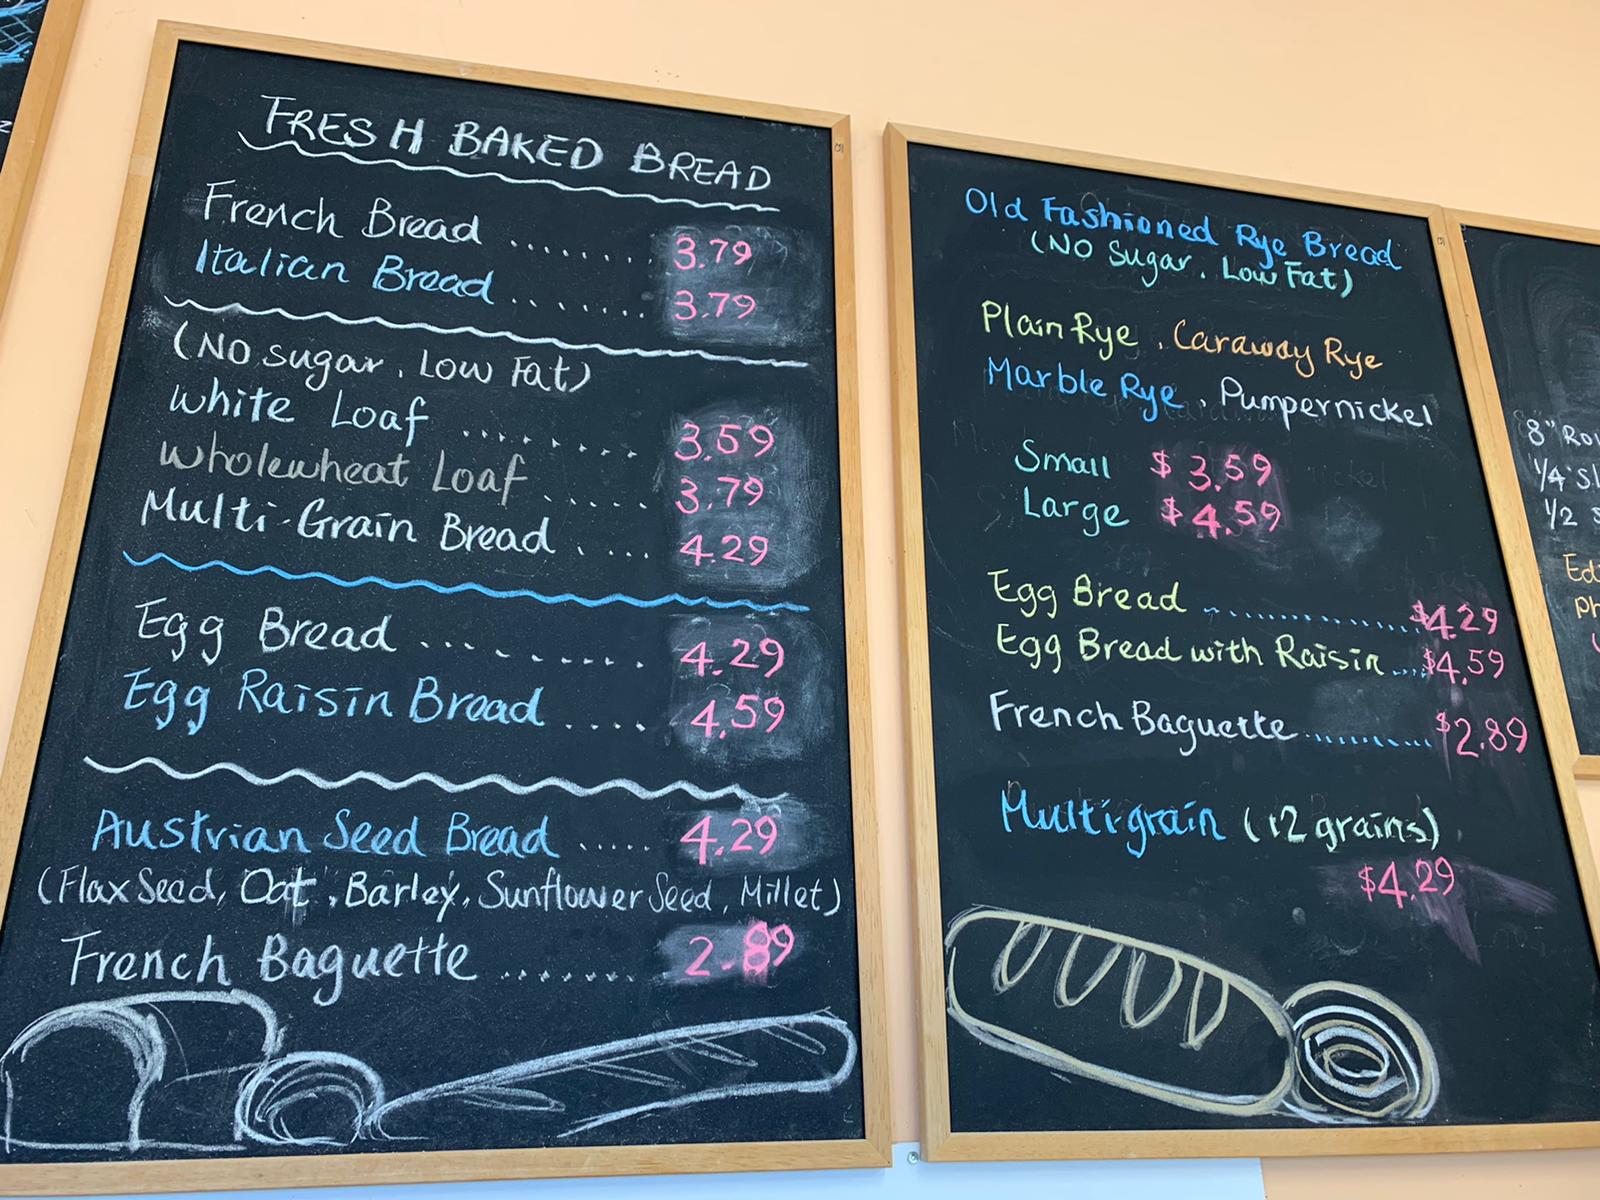 FRESH BAKED BREAD
French Bread ....... 3.79
Italian Bread ...... 3.79
(No sugar, Low Fat)
White Loaf ....... 3.59
Wholewheat Loaf ..... 3.79
Multi-Grain Bread .... 4.29
Egg Bread ......... 4.29
Egg Raisin Bread .... 4.59
Austrian Seed Bread ..... 4.29
(Flax Seed, Oat, Barley, Sunflower Seed, Millet)
French Baguette ....... 2.89
Old Fashioned Rye Bread
(No Sugar, Low Fat)
Plain Rye, Caraway Rye
Marble Rye, Pumpernickel
Small $3.59
Large $4.59
Egg Bread .................. $4.29
Egg Bread with Raisin ..... $4.59
French Baguette ............ $2.89
Multi-grain (12 grains)
$4.29
8"
1/4
1/2